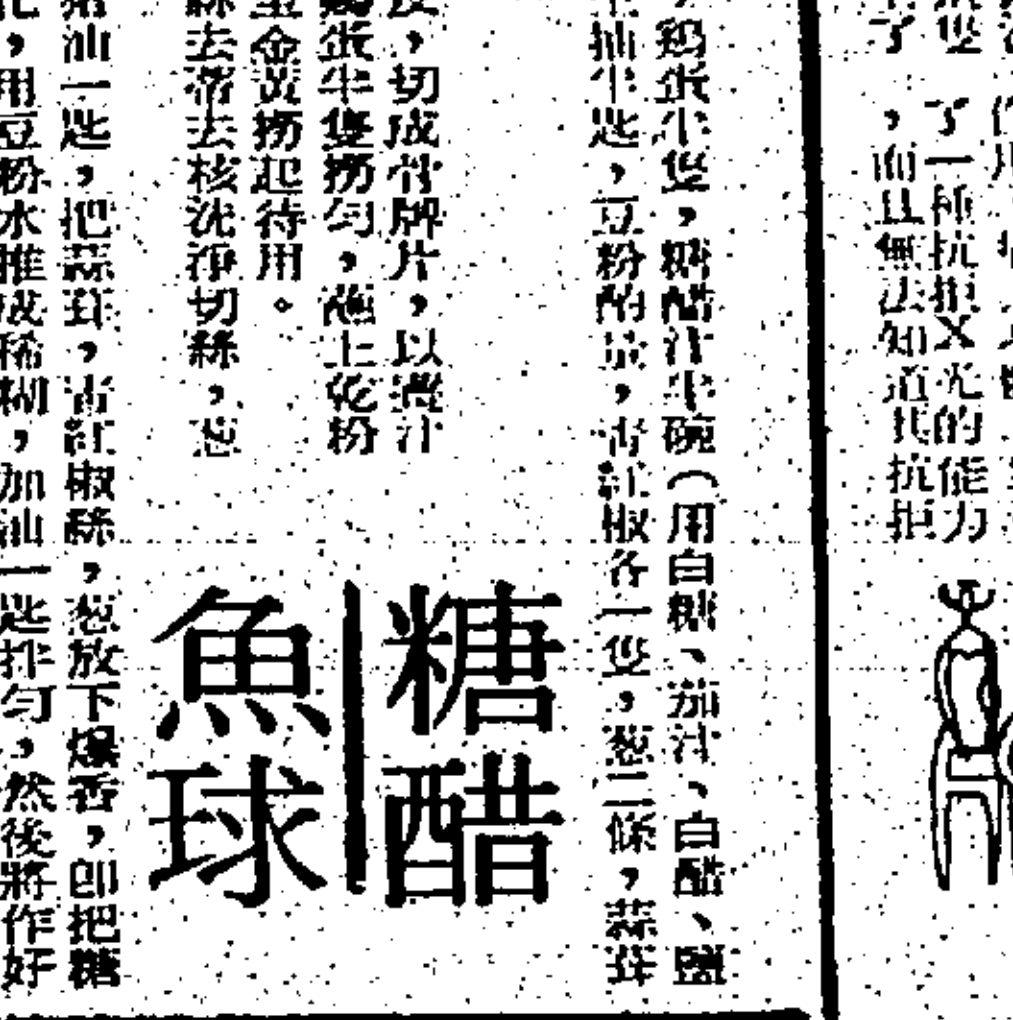 了一種抗拒X光的能力
，而且無法知道其抗拒
，鷄蛋半隻，糖醋汁半碗（用白糖、茄汁、白醋、鹽
抽半匙，豆粉酌量，青紅椒各一隻，葱二條，蒜茸
糖醋
魚球
，切成骨牌片，以薑汁
蛋半隻撈勻，蘸上乾粉
金黃撈起待用。
去蒂去核洗淨切絲，葱
油一匙，把蒜茸，青紅椒絲，葱放下爆香，卽把糖
，用豆粉水推成稀糊，加油一匙拌勻，然後將作好